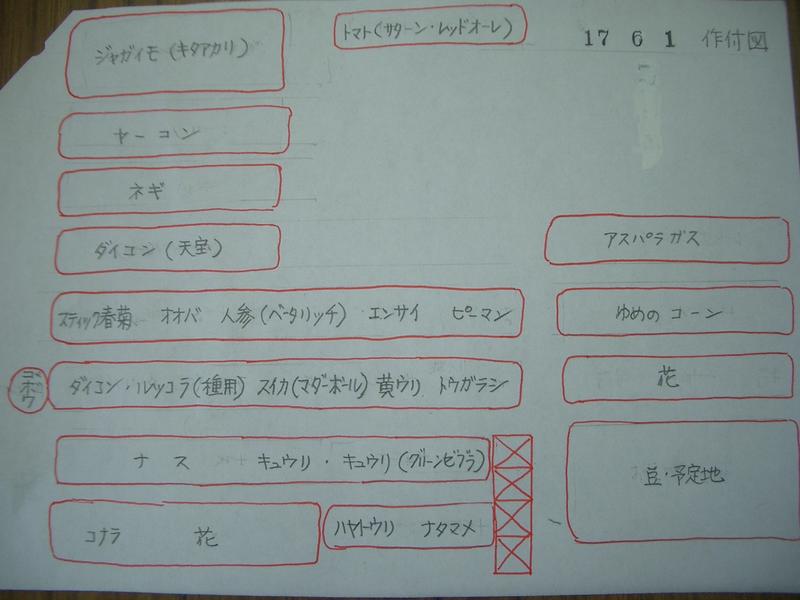 17 6 1 作付図
ジャガイモ(キタアカリ)
トマト(サターン・レッドオーレ)
ヤーコン
ネギ
ダイコン(天宝)
アスパラガス
スティック春菊 オオバ 人参(ベータリッチ) エンサイ ピーマン
ゆめのコーン
ゴボウ
ダイコン・ルッコラ(種用) スイカ(マダーボール) 黄ウリ トウガラシ
花
ナス キュウリ・キュウリ(グリーンゼブラ)
豆・予定地
コナラ 花
ハヤトウリ ナタマメ